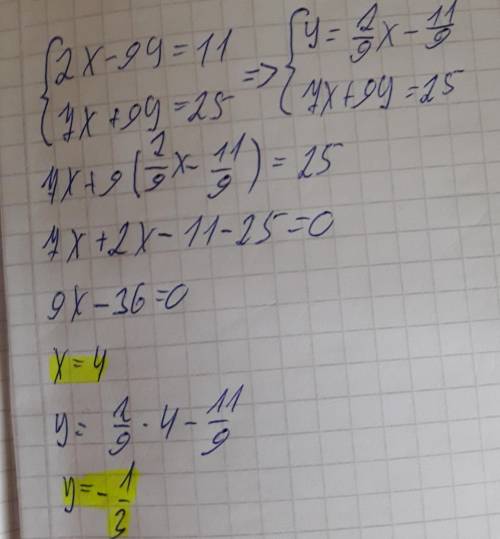 {2x-9y=11 => {y=2/9x-11/9
{7x+9y=25 {7x+9y=25
7x+9(2/9x-11/9)=25
7x+2x-11-25=0
9x-36=0
x=4
y=2/9·4-11/9
y=-1/3